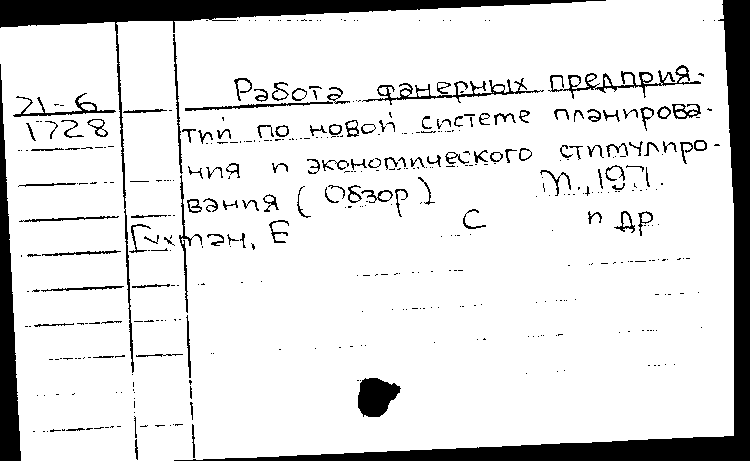 71-6
1728
Работа фанерных предприя-
тий по новой системе планирова-
ния и экономического стимулиро-
вания (Обзор) М., 1971.
Гухман, Е С и др